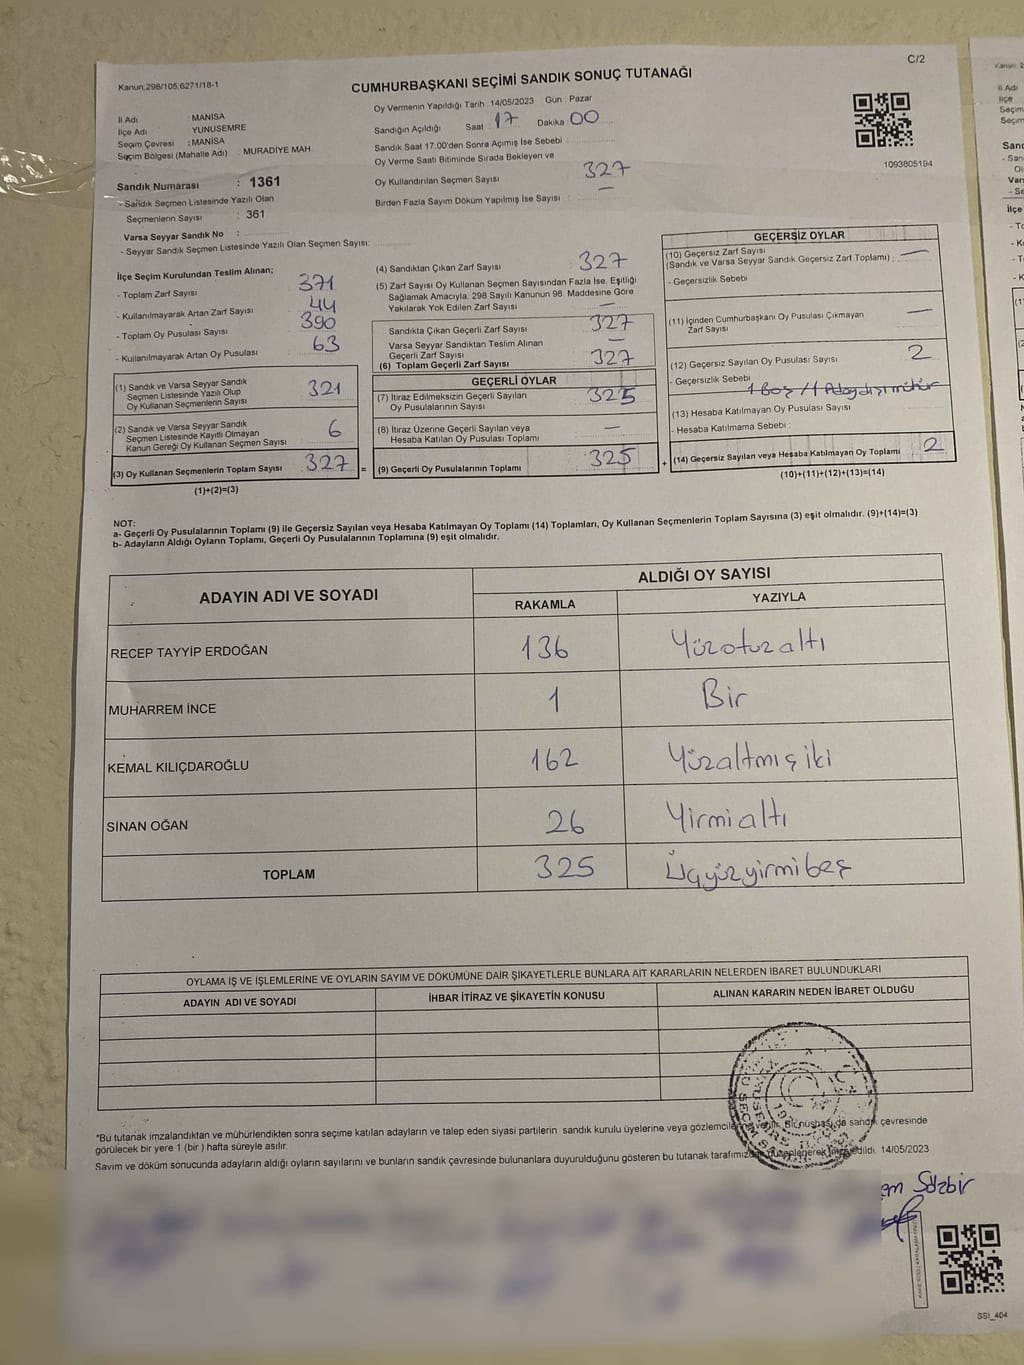 C/2
Kanun;298/105;6271/18-1
CUMHURBAŞKANI SEÇİMİ SANDIK SONUÇ TUTANAĞI
Oy Vermenin Yapıldığı Tarih : 14/05/2023 Gün : Pazar
İl Adı : MANİSA
İlçe Adı : YUNUSEMRE
Seçim Çevresi : MANİSA
Seçim Bölgesi (Mahalle Adı) : MURADİYE MAH
Sandık Numarası : 1361
- Sandık Seçmen Listesinde Yazılı Olan
Seçmenlerin Sayısı : 361
Varsa Seyyar Sandık No :
- Seyyar Sandık Seçmen Listesinde Yazılı Olan Seçmen Sayısı:
Sandığın Açıldığı Saat : 17 Dakika : 00
Sandık Saat 17.00'den Sonra Açımış İse Sebebi :
Oy Verme Saati Bitiminde Sırada Bekleyen ve
Oy Kullandırılan Seçmen Sayısı 327
Birden Fazla Sayım Döküm Yapılmış İse Sayısı : —
1093805194
İlçe Seçim Kurulundan Teslim Alınan;
- Toplam Zarf Sayısı 371
- Kullanılmayarak Artan Zarf Sayısı 44
- Toplam Oy Pusulası Sayısı 390
- Kullanılmayarak Artan Oy Pusulası 63
(1) Sandık ve Varsa Seyyar Sandık
Seçmen Listesinde Yazılı Olup
Oy Kullanan Seçmenlerin Sayısı 321
(2) Sandık ve Varsa Seyyar Sandık
Seçmen Listesinde Kayıtlı Olmayan
Kanun Gereği Oy Kullanan Seçmen Sayısı 6
(3) Oy Kullanan Seçmenlerin Toplam Sayısı 327 =
(1)+(2)=(3)
(4) Sandıktan Çıkan Zarf Sayısı 327
(5) Zarf Sayısı Oy Kullanan Seçmen Sayısından Fazla İse, Eşitliği
Sağlamak Amacıyla, 298 Sayılı Kanunun 98. Maddesine Göre
Yakılarak Yok Edilen Zarf Sayısı —
Sandıkta Çıkan Geçerli Zarf Sayısı 327
Varsa Seyyar Sandıktan Teslim Alınan
Geçerli Zarf Sayısı —
(6) Toplam Geçerli Zarf Sayısı 327
GEÇERLİ OYLAR
(7) İtiraz Edilmeksizin Geçerli Sayılan
Oy Pusulalarının Sayısı 325
(8) İtiraz Üzerine Geçerli Sayılan veya
Hesaba Katılan Oy Pusulası Toplamı —
(9) Geçerli Oy Pusulalarının Toplamı 325 +
GEÇERSİZ OYLAR
(10) Geçersiz Zarf Sayısı
(Sandık ve Varsa Seyyar Sandık Geçersiz Zarf Toplamı) —
- Geçersizlik Sebebi
(11) İçinden Cumhurbaşkanı Oy Pusulası Çıkmayan
Zarf Sayısı —
(12) Geçersiz Sayılan Oy Pusulası Sayısı 2
- Geçersizlik Sebebi 1 Boş / 1 Aday dışı mühür
(13) Hesaba Katılmayan Oy Pusulası Sayısı
- Hesaba Katılmama Sebebi :
(14) Geçersiz Sayılan veya Hesaba Katılmayan Oy Toplamı 2
(10)+(11)+(12)+(13)=(14)
NOT:
a- Geçerli Oy Pusulalarının Toplamı (9) ile Geçersiz Sayılan veya Hesaba Katılmayan Oy Toplamı (14) Toplamları, Oy Kullanan Seçmenlerin Toplam Sayısına (3) eşit olmalıdır. (9)+(14)=(3)
b- Adayların Aldığı Oyların Toplamı, Geçerli Oy Pusulalarının Toplamına (9) eşit olmalıdır.
ADAYIN ADI VE SOYADI ALDIĞI OY SAYISI
RAKAMLA YAZIYLA
RECEP TAYYİP ERDOĞAN 136 Yüzotuzaltı
MUHARREM İNCE 1 Bir
KEMAL KILIÇDAROĞLU 162 Yüzaltmışiki
SİNAN OĞAN 26 Yirmialtı
TOPLAM 325 Üçyüzyirmibeş
OYLAMA İŞ VE İŞLEMLERİNE VE OYLARIN SAYIM VE DÖKÜMÜNE DAİR ŞİKAYETLERLE BUNLARA AİT KARARLARIN NELERDEN İBARET BULUNDUKLARI
ADAYIN ADI VE SOYADI İHBAR İTİRAZ VE ŞİKAYETİN KONUSU ALINAN KARARIN NEDEN İBARET OLDUĞU
*Bu tutanak imzalandıktan ve mühürlendikten sonra seçime katılan adayların ve talep eden siyasi partilerin sandık kurulu üyelerine veya gözlemcilerine verilir. Bir nüshası da sandık çevresinde
görülecek bir yere 1 (bir ) hafta süreyle asılır.
Sayım ve döküm sonucunda adayların aldığı oyların sayılarını ve bunların sandık çevresinde bulunanlara duyurulduğunu gösteren bu tutanak tarafımızdan düzenlenerek imza edildi. 14/05/2023
em Sözbir
SSI_404